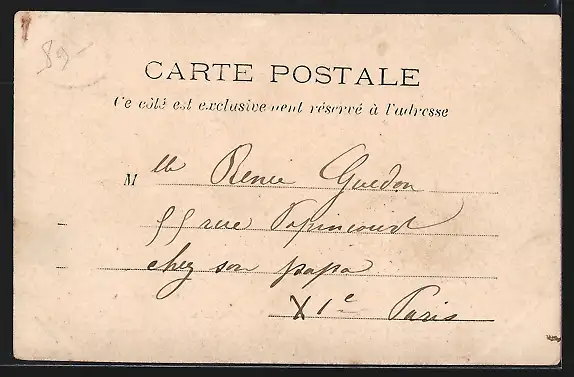 89-
CARTE POSTALE
Ce côté est exclusivement réservé à l'adresse
Mlle Renée Guédon
55 rue Popincourt
chez son papa
XIe Paris